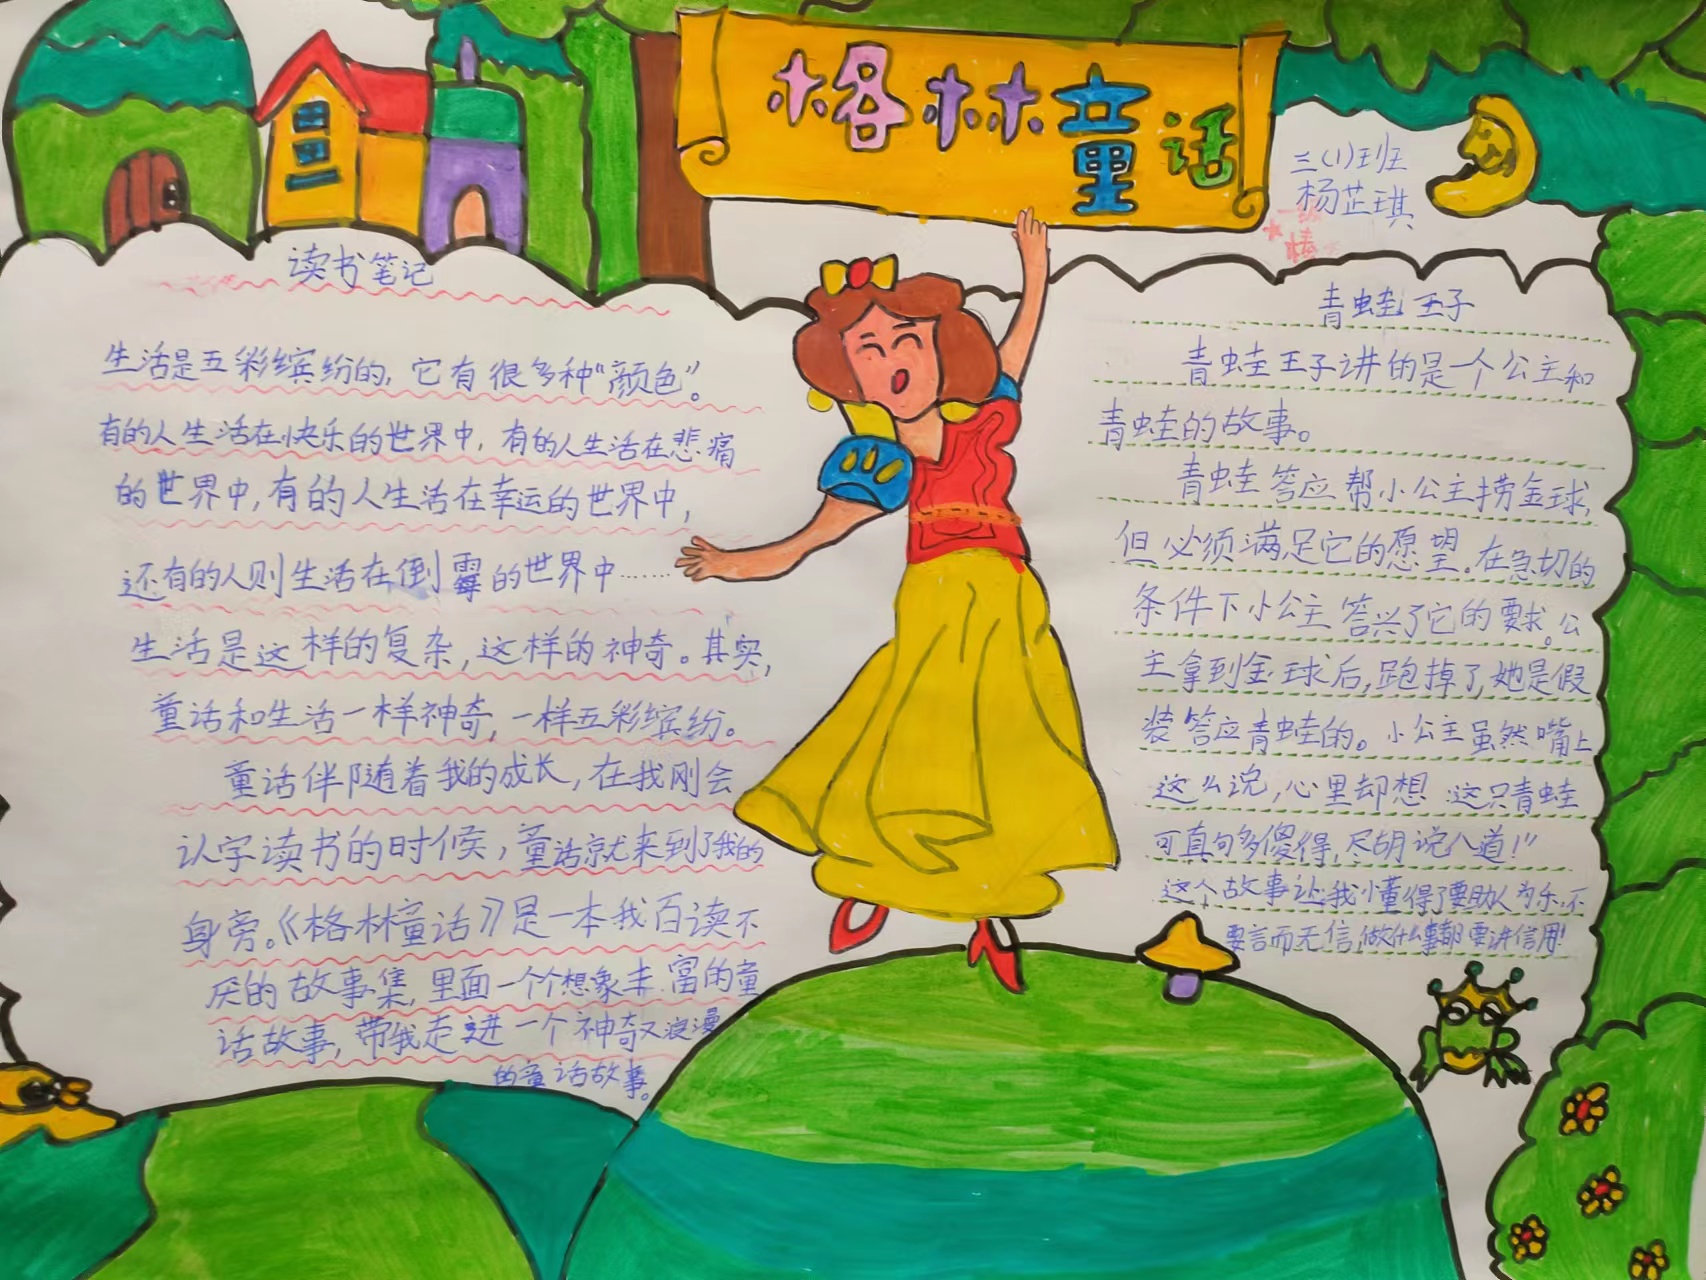 格林童话
三(1)班
杨芷琪
读书笔记
生活是五彩缤纷的,它有很多种“颜色”。
有的人生活在快乐的世界中,有的人生活在悲痛
的世界中,有的人生活在幸运的世界中,
还有的人则生活在倒霉的世界中……
生活是这样的复杂,这样的神奇。其实,
童话和生活一样神奇,一样五彩缤纷。
童话伴随着我的成长,在我刚会
认字读书的时候,童话就来到了我的
身旁。《格林童话》是一本我百读不
厌的故事集,里面一个个想象丰富的童
话故事,带我走进一个神奇又浪漫
的童话故事。
青蛙王子
青蛙王子讲的是一个公主和
青蛙的故事。
青蛙答应帮小公主捞金球,
但必须满足它的愿望。在急切的
条件下小公主答兴了它的要求。公
主拿到金球后,跑掉了,她是假
装答应青蛙的。小公主虽然嘴上
这么说,心里却想这只青蛙
可真够多傻得,尽胡说八道!”
这个故事让我懂得了要助人为乐,不
要言而无信,做什么事都要讲信用!